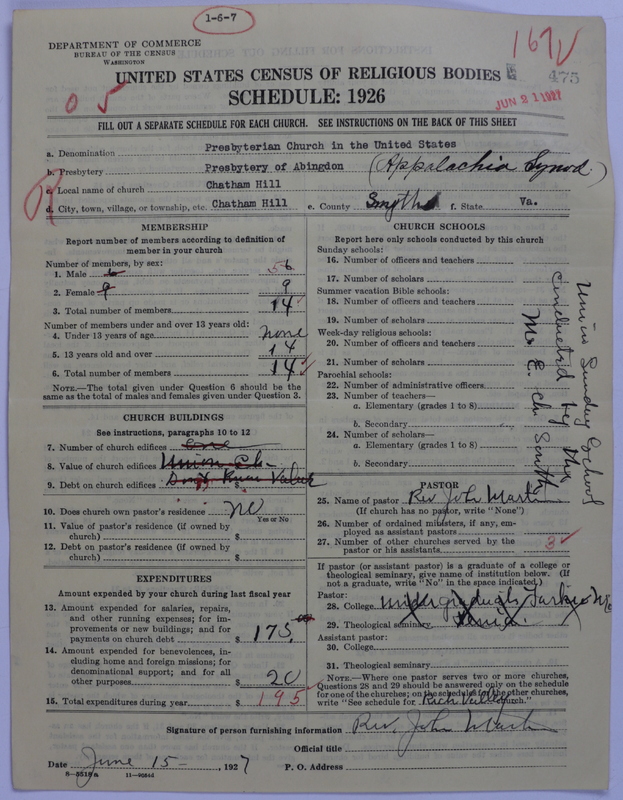 1-6-7
DEPARTMENT OF COMMERCE
BUREAU OF THE CENSUS
WASHINGTON
UNITED STATES CENSUS OF RELIGIOUS BODIES
SCHEDULE: 1926
475
JUN 21 1927
05
FILL OUT A SEPARATE SCHEDULE FOR EACH CHURCH. SEE INSTRUCTIONS ON THE BACK OF THIS SHEET
a. Denomination Presbyterian Church in the United States
b. Presbytery Presbytery of Abingdon (Appalachia Synod.)
c. Local name of church Chatham Hill
d. City, town, village, or township, etc. Chatham Hill e. County Smyth f. State Va.
MEMBERSHIP
Report number of members according to definition of
member in your church
Number of members, by sex:
1. Male 6
2. Female 9 9
3. Total number of members 14
Number of members under and over 13 years old:
4. Under 13 years of age none
5. 13 years old and over 14
6. Total number of members 14
NOTE.—The total given under Question 6 should be
same as the total of males and females given under Question 3.
CHURCH BUILDINGS
See instructions, paragraphs 10 to 12
7. Number of church edifices One
8. Value of church edifices Union Ch.
9. Debt on church edifices $ Don't Know Value
10. Does church own pastor's residence no
Yes or No
11. Value of pastor's residence (if owned by
church) $
12. Debt on pastor's residence (if owned by
church) $
EXPENDITURES
Amount expended by your church during last fiscal year
13. Amount expended for salaries, repairs,
and other running expenses; for im-
provements or new buildings; and for
payments on church debt $ 175
14. Amount expended for benevolences, in-
cluding home and foreign missions; for
denominational support; and for all
other purposes $ 20
15. Total expenditures during year $ 195
CHURCH SCHOOLS
Report here only schools conducted by this church
Sunday schools:
16. Number of officers and teachers
17. Number of scholars
Summer vacation Bible schools:
18. Number of officers and teachers
19. Number of scholars
Week-day religious schools:
20. Number of officers and teachers
21. Number of scholars
Parochial schools:
22. Number of administrative officers
23. Number of teachers—
a. Elementary (grades 1 to 8)
b. Secondary
24. Number of scholars—
a. Elementary (grades 1 to 8)
b. Secondary
Union Sunday School
Conducted by the
M. E. Ch. South
PASTOR
25. Name of pastor Rev John Martin
(If church has no pastor, write "None")
26. Number of ordained ministers, if any, em-
ployed as assistant pastors
27. Number of other churches served by the
pastor or his assistants 3
If pastor (or assistant pastor) is a graduate of a college or
theological seminary, give name of institution below. (If
not a graduate, write "No" in the space indicated.)
Pastor:
28. College Undergraduate Tarkio
29. Theological seminary Xenia
Assistant pastor:
30. College
31. Theological seminary
NOTE.—Where one pastor serves two or more churches,
Questions 28 and 29 should be answered only on the schedule
for one of the churches; on the schedule for the other churches,
write "See schedule for Rich Valley church."
Signature of person furnishing information Rev. John Martin
Official title
Date June 15- , 1927 P. O. Address
8-5518a 11-9054d